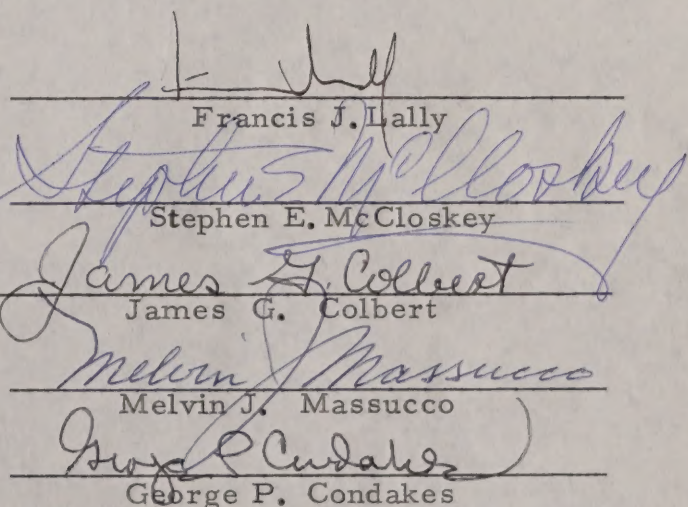 Francis J. Lally
Stephen E. McCloskey
Stephen E. McCloskey
James G. Colbert
James G. Colbert
Melvin J. Massucco
Melvin J. Massucco
George P. Condakes
George P. Condakes